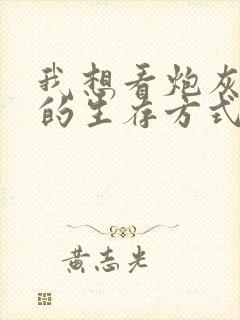 我想看炮灰
的生存方式
黄志光